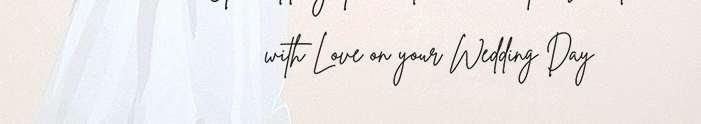 with Love on your Wedding Day